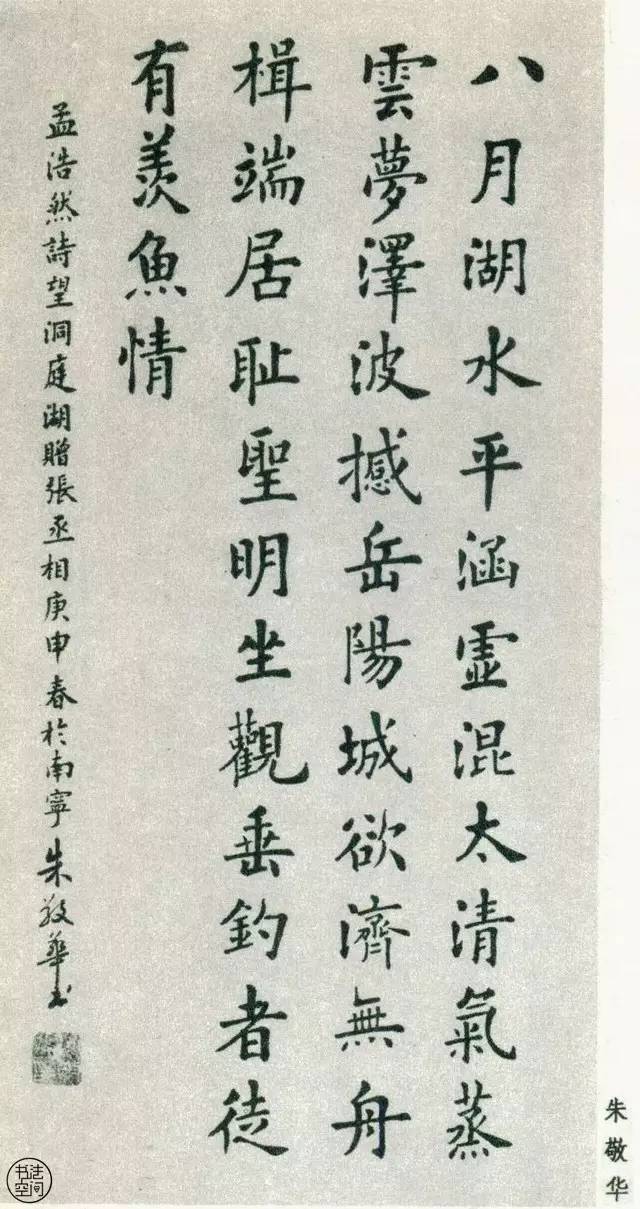 八月湖水平涵虛混太清氣蒸
雲夢澤波撼岳陽城欲濟無舟
楫端居耻聖明坐觀垂釣者徒
有羨魚情
孟浩然詩望洞庭湖贈張丞相庚申春於南寧朱敬華书
朱敬华
书法空间